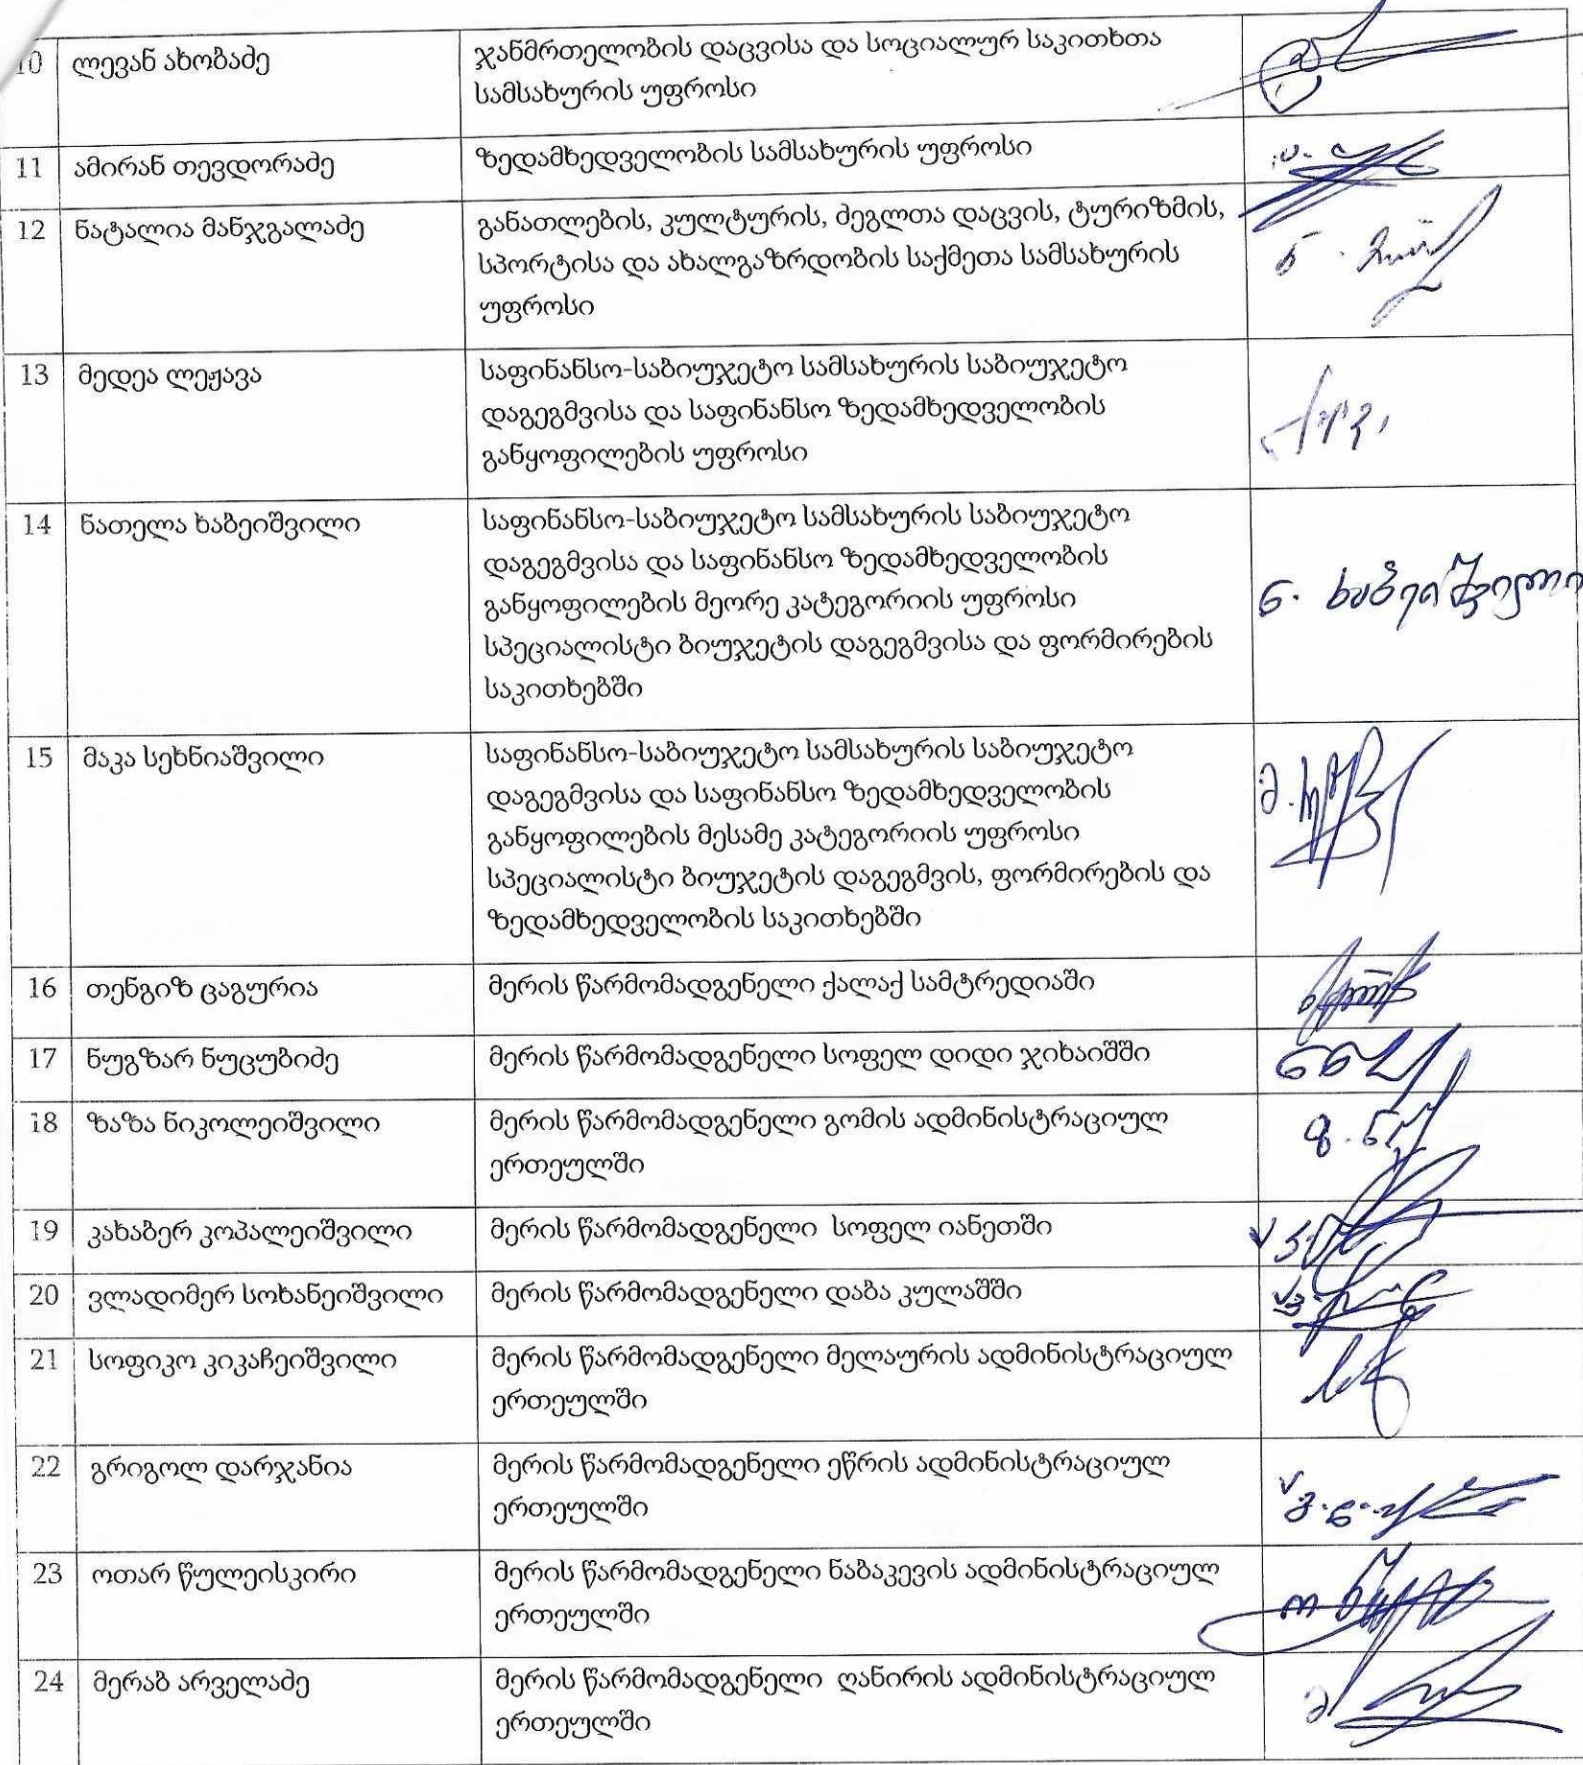 10 ლევან ახობაძე ჯანმრთელობის დაცვისა და სოციალურ საკითხთა
სამსახურის უფროსი
11 ამირან თევდორაძე ზედამხედველობის სამსახურის უფროსი
12 ნატალია მანჯგალაძე განათლების, კულტურის, ძეგლთა დაცვის, ტურიზმის,
სპორტისა და ახალგაზრდობის საქმეთა სამსახურის
უფროსი
13 მედეა ლეჟავა საფინანსო-საბიუჯეტო სამსახურის საბიუჯეტო
დაგეგმვისა და საფინანსო ზედამხედველობის
განყოფილების უფროსი
14 ნათელა ხაბეიშვილი საფინანსო-საბიუჯეტო სამსახურის საბიუჯეტო
დაგეგმვისა და საფინანსო ზედამხედველობის
განყოფილების მეორე კატეგორიის უფროსი
ნ. ხაბეიშვილი
სპეციალისტი ბიუჯეტის დაგეგმვისა და ფორმირების
საკითხებში
15 მაკა სეხნიაშვილი საფინანსო-საბიუჯეტო სამსახურის საბიუჯეტო
დაგეგმვისა და საფინანსო ზედამხედველობის
განყოფილების მესამე კატეგორიის უფროსი
სპეციალისტი ბიუჯეტის დაგეგმვის, ფორმირების და
ზედამხედველობის საკითხებში
16 თენგიზ ცაგურია მერის წარმომადგენელი ქალაქ სამტრედიაში
17 ნუგზარ ნუცუბიძე მერის წარმომადგენელი სოფელ დიდი ჯიხაიშში
18 ზაზა ნიკოლეიშვილი მერის წარმომადგენელი გომის ადმინისტრაციულ
ერთეულში
19 კახაბერ კოპალეიშვილი მერის წარმომადგენელი სოფელ იანეთში
20 ვლადიმერ სოხანეიშვილი მერის წარმომადგენელი დაბა კულაშში
21 სოფიკო კიკაჩეიშვილი მერის წარმომადგენელი მელაურის ადმინისტრაციულ
ერთეულში
22 გრიგოლ დარჯანია მერის წარმომადგენელი ეწრის ადმინისტრაციულ
ერთეულში
23 ოთარ წულეისკირი მერის წარმომადგენელი ნაბაკევის ადმინისტრაციულ
ერთეულში
24 მერაბ არველაძე მერის წარმომადგენელი ღანირის ადმინისტრაციულ
ერთეულში